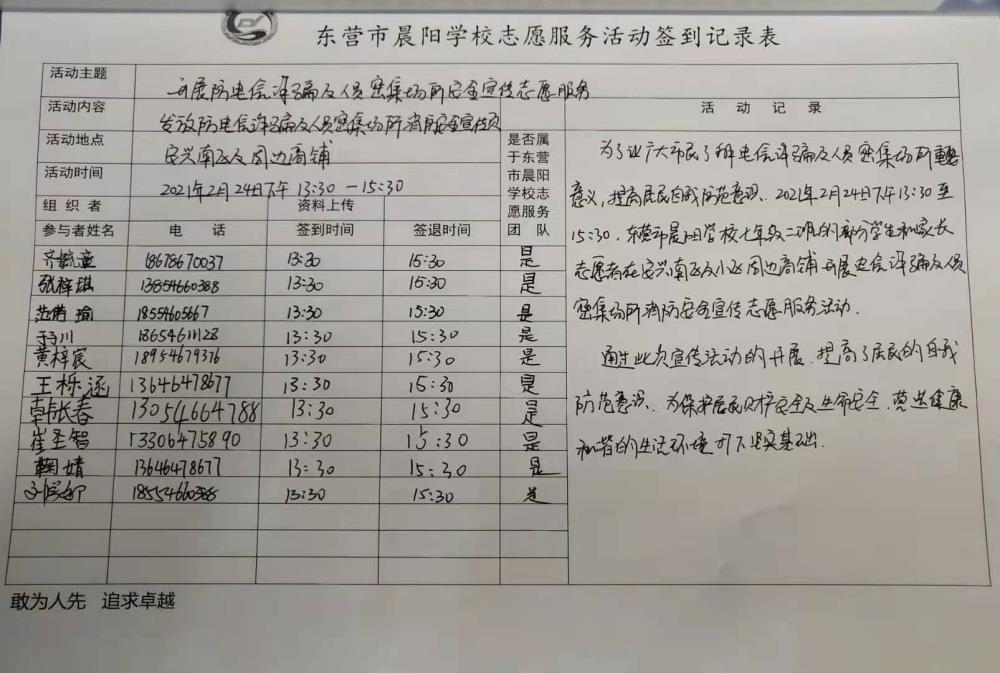 东营市晨阳学校志愿服务活动签到记录表
活动主题 开展防电信诈骗及人员密集场所安全宣传志愿服务
活动内容 发放防电信诈骗及人员密集场所消防安全宣传页
活动地点 安兴南区及周边商铺
活动时间 2021年2月24日下午 13:30 —15:30
组织者 资料上传
是否属于东营市晨阳学校志愿服务团队
参与者姓名 电话 签到时间 签退时间
齐毓童 18678670037 13:30 15:30 是
张梓琪 13854660388 13:30 15:30 是
瑜 18554605667 13:30 15:30 是
于子川 18654611128 13:30 15:30 是
黄梓宸 18954679376 13:30 15:30 是
王栎涵 13646478677 13:30 15:30 是
韩长春 13054664788 13:30 15:30 是
崔圣智 13306475890 13:30 15:30 是
鞠婧 13646478677 13:30 15:30 是
18554660388 13:30 15:30 是
活动记录
为了让广大市民了解电信诈骗及人员密集场所重要
意义,提高居民自我防范意识、2021年2月24日下午13:30至
15:30,东营市晨阳学校七年级二班的部分学生和家长
志愿者在安兴南区及小区周边商铺开展电信诈骗及人员
密集场所消防安全宣传志愿服务活动.
通过此次宣传活动的开展.提高了居民的自我
防范意识、为保护居民财产安全及生命安全、营造健康
和谐的生活环境打下坚实基础.
敢为人先 追求卓越